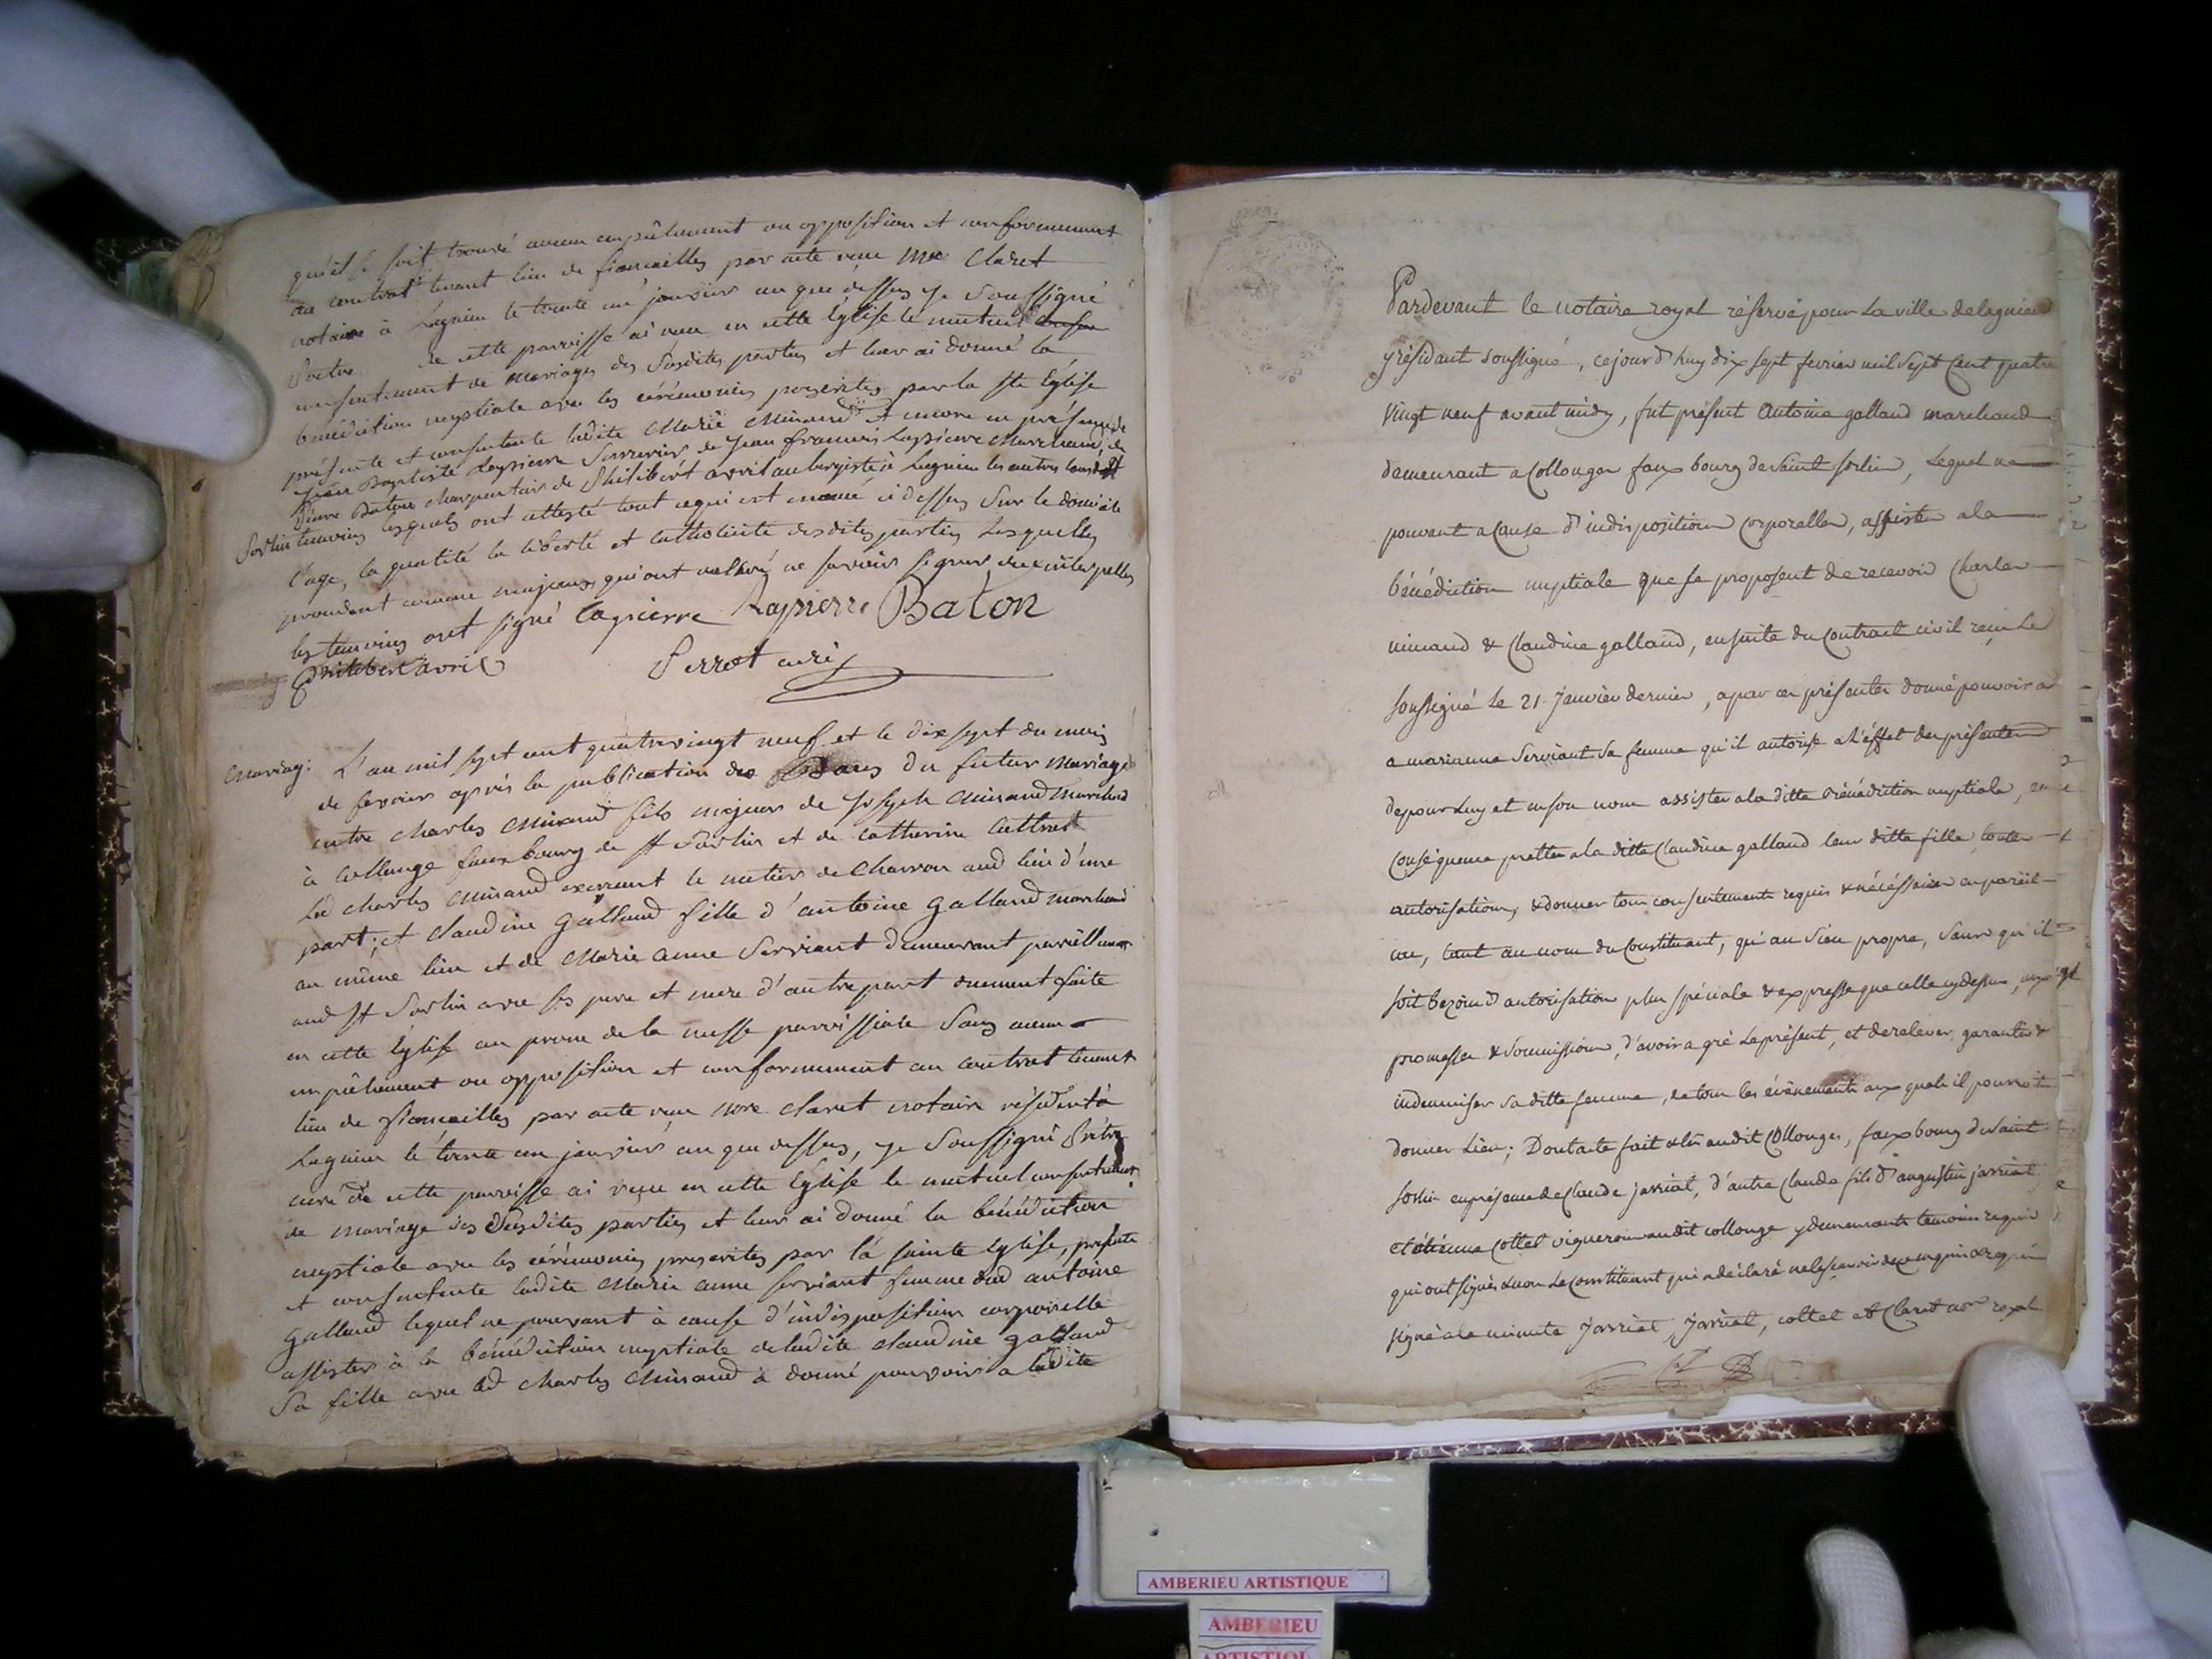 qu'il se soit trouvé aucun empêchement ou opposition et conformement
au contrat tenant lieu de fiancailles par acte reçu Me Claret
notaire à Lagnieu le trente un janvier an que dessus je soussigné
Prêtre de cette parroisse ai reçu en cette Eglise le mutuel
consentement de mariage des susdites parties et leur ai donné la
bénédiction nuptiale avec les cérémonies prescrites par la Ste Eglise
présente et consentante ladite Marie Minand et encore en présence de
Jean Baptiste Lapierre Serrurier de Jean francois Lapierre Marchand, de
Pierre Baton charpentier de Philibert avril aubergiste à Lagnieu les autres tous de St
Sorlin temoins lesquels ont attesté tout ce qui est énoncé ci dessus sur le domicile
l'age, la qualité la liberté et catholicité desdites parties Lesquelles
procedent comme majeurs, qui ont declaré ne savoir signer de ce interpellés
les temoins ont signé Lapierre Lapierre Baton
Philibert avril Perrot curé
Mariag: L'an mil sept cent quatrevingt neuf et le dix sept du mois
de fevrier après la publication des Bans du futur mariage
entre Charles Minand fils majeur de Joseph Minand Marchand
à Collonge fauxbourg de St Sorlin et de Catherine
Led Charles Minand exercant le metier de Charron aud lieu d'une
part; et Claudine Galland fille d'antoine Galland marchand
au même lieu et de Marie anne Serviant demeurant pareillement
aud St Sorlin avec ses pere et mere d'autre part duement faite
en cette Eglise au prone de la messe parroissiale sans aucun
empêchement ou opposition et conformement au contrat tenant
lieu de fiancailles par acte reçu Me Claret notaire résident à
Lagnieu le trente un janvier an que dessus, je soussigné Prêtre
curé de cette parroisse ai reçu en cette Eglise le mutuel consentement
de mariage des Susdites parties et leur ai donné la bénédiction
nuptiale avec les cérémonies prescrites par la sainte Eglise, présente
et consentante ladite Marie anne serviant femme dud antoine
Galland lequel ne pouvant à cause d'indisposition corporelle
assister à la bénédiction nuptiale de ladite claudine galland
Sa fille avec led Charles Minand à donné pouvoir a ladite
Pardevant le notaire royal réservé pour La ville de lagnieu
y résidant soussigné, cejourd'huy dix sept fevrier mil Sept Cent quatre
vingt neuf avant midy, fut présent Antoine galland marchand
demeurant a Collonges faux bourg de Saint Sorlin, Lequel ne
pouvant a Cause d'indisposition Corporelles, assister a la
bénédiction nuptiale que se proposent de recevoir Charles
minand & Claudine galland, ensuite du Contract civil reçu Le
soussigné Le 21. Janvier dernier, a par ces présentes donné pouvoir a
a marianne Serviant Sa femme qu'il autorise a L'éffet des présentes
de pour Luy et en son nom assister a la ditte Bénédiction nuptiale, en
Conséquence pretter a la ditte Claudine galland leur ditte fille toutes
autorisations, & donner tous consentements requis & nécéssaires en pareil
cas, tant au nom du Constituant, qu'au Sien propre, Sans qu'il
soit bezoin d'autorisation plus spéciale & expresse que celle cy dessus,
promesses & Soumissions, d'avoir a gré Le présent, et de relever garantir &
indemniser Sa ditte femme, de tous les évènements auxquels il pourroit
donner Lieu; Dont acte fait & lû audit Collonges, fauxbourg de Saint
Sorlin en présence de Claude jarriat, d'autre Claude fils d'augustin jarriat
et étienne Cottet vigneron audit collonge y demeurants temoins requis
qui ont signés & non Le Constituant qui a déclaré ne le sçavoir de ce enquis & requis
signé a la minute Jarriat Jarriat, cottet et Claret nore royal
AMBERIEU ARTISTIQUE
AMBERIEU
ARTISTIQUE